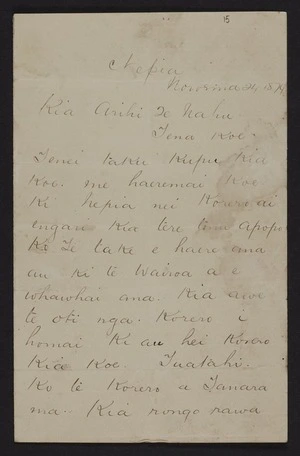 15
Nepia
Kia Arihi Te Nahu
Tena Koe.
Tenei taku Kupu Kia
Koe. me haeremai Koe
Ki Nepia nei Korero ai
engari Kia tere tonu apopo
Ko Te take e haere ana
au ki te Wairoa a e
whawhai ana. Kia
te oti nga. Korero i
homai Ki au hei Korero
Kia Koe. Tuatahi.
Ko te Korero a Tanara
ma. Kia rongo rawa